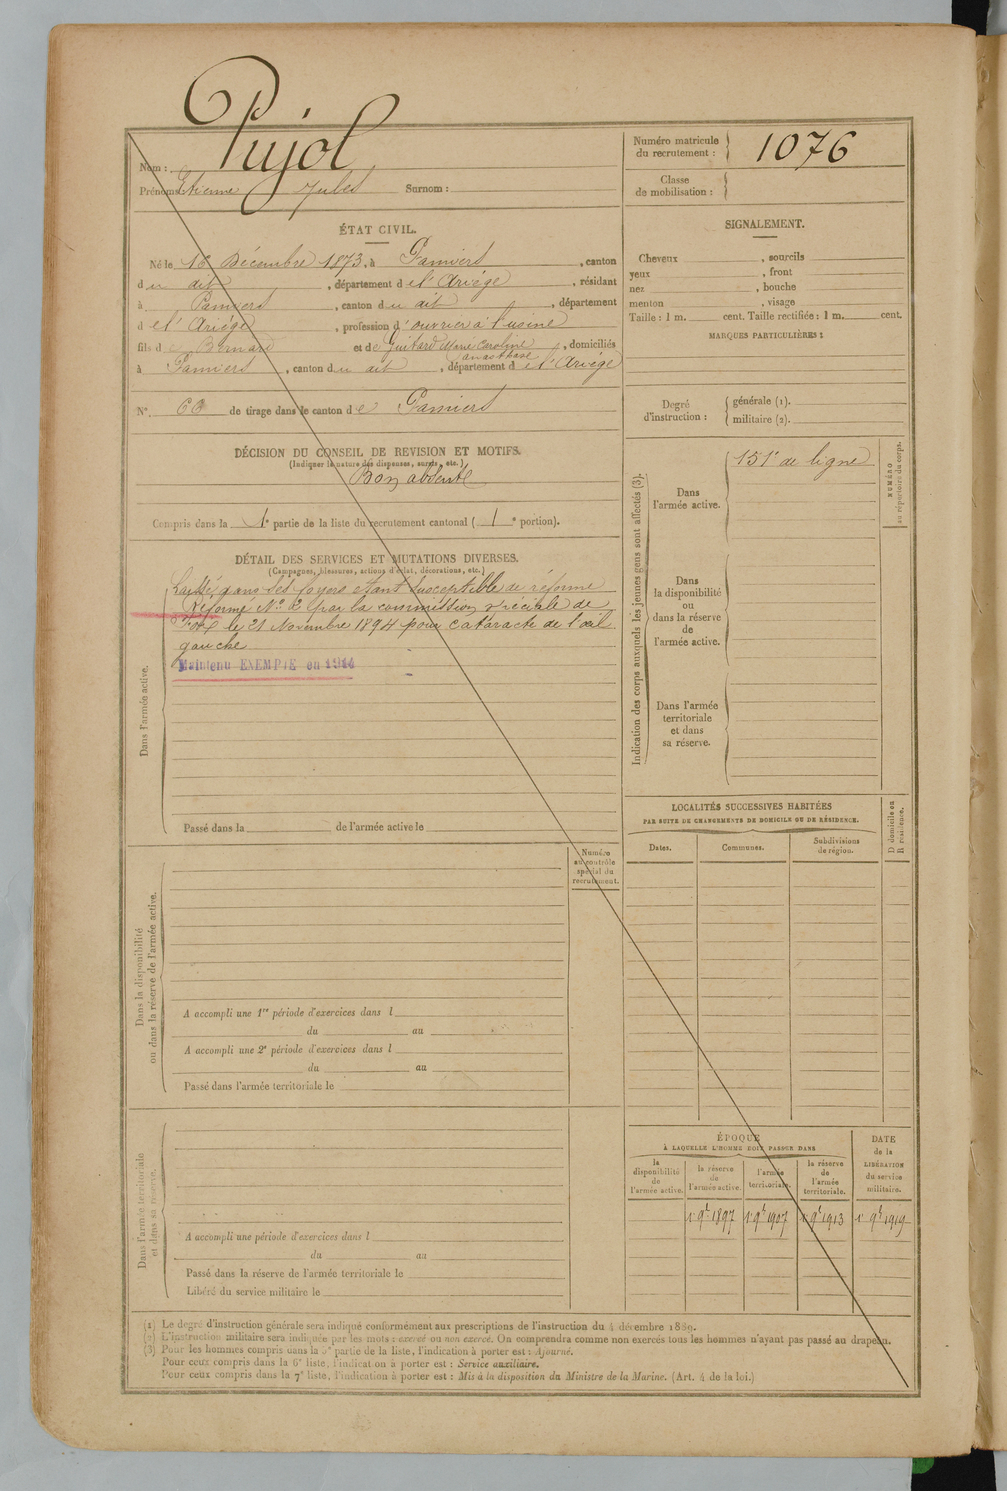 Pujol
Nom :
Prénoms : Etienne Jules Surnom :
Numéro matricule
du recrutement : 1076
Classe
de mobilisation :
ÉTAT CIVIL.
Né le 16 Décembre 1873, à Pamiers, canton
du dit, département de l'Ariége, résidant
à Pamiers, canton du dit, département
de l'Ariége, profession d'ouvrier à l'usine
fils de Bernard et de Guitard Marie Caroline, domiciliés
anasthase
à Pamiers, canton du dit, département de l'Ariége
N°. 60 de tirage dans le canton de Pamiers
DÉCISION DU CONSEIL DE REVISION ET MOTIFS.
(Indiquer la nature des dispenses, sursis, etc.)
Bon absent
Compris dans la 1e partie de la liste du recrutement cantonal ( 1e portion).
DÉTAIL DES SERVICES ET MUTATIONS DIVERSES.
(Campagnes, blessures, actions d'éclat, décorations, etc.)
Laissé dans ses foyers étant susceptible de réforme
Réformé N° 2 par la commission spéciale de
Foix le 21 Novembre 1894 pour cataracte de l'œil
gauche
Maintenu EXEMPTÉ en 1914
Dans l'armée active.
Passé dans la de l'armée active le
Numéro
au contrôle
spécial du
recrutement.
Dans la disponibilité
ou dans la réserve de l'armée active.
A accompli une 1re période d'exercices dans l
du au
A accompli une 2e période d'exercices dans l
du au
Passé dans l'armée territoriale le
Dans l'armée territoriale
et dans sa réserve.
A accompli une période d'exercices dans l
du au
Passé dans la réserve de l'armée territoriale le
Libéré du service militaire le
SIGNALEMENT.
Cheveux , sourcils
yeux , front
nez , bouche
menton , visage
Taille : 1 m. cent. Taille rectifiée : 1 m. cent.
MARQUES PARTICULIÈRES :
Degré
d'instruction :
générale (1).
militaire (2).
Indication des corps auxquels les jeunes gens sont affectés (3).
Dans
l'armée active.
151e de ligne
NUMÉRO
au répertoire du corps.
Dans
la disponibilité
ou
dans la réserve
de
l'armée active.
Dans l'armée
territoriale
et dans
sa réserve.
LOCALITÉS SUCCESSIVES HABITÉES
PAR SUITE DE CHANGEMENTS DE DOMICILE OU DE RÉSIDENCE.
Dates. Communes. Subdivisions
de région.
D domicile ou
R résidence.
ÉPOQUE
À LAQUELLE L'HOMME DOIT PASSER DANS
la
disponibilité
de
l'armée active.
la réserve
de
l'armée active.
l'armée
territoriale.
la réserve
de
l'armée
territoriale.
DATE
de la
LIBÉRATION
du service
militaire.
1er 9bre 1897 1er 9bre 1907 1er 9bre 1913 1er 9bre 1919
(1) Le degré d'instruction générale sera indiqué conformément aux prescriptions de l'instruction du 4 décembre 1889.
(2) L'instruction militaire sera indiquée par les mots : exercé ou non exercé. On comprendra comme non exercés tous les hommes n'ayant pas passé au drapeau.
(3) Pour les hommes compris dans la 5e partie de la liste, l'indication à porter est : Ajourné.
Pour ceux compris dans la 6e liste, l'indication à porter est : Service auxiliaire.
Pour ceux compris dans la 7e liste, l'indication à porter est : Mis à la disposition du Ministre de la Marine. (Art. 4 de la loi.)